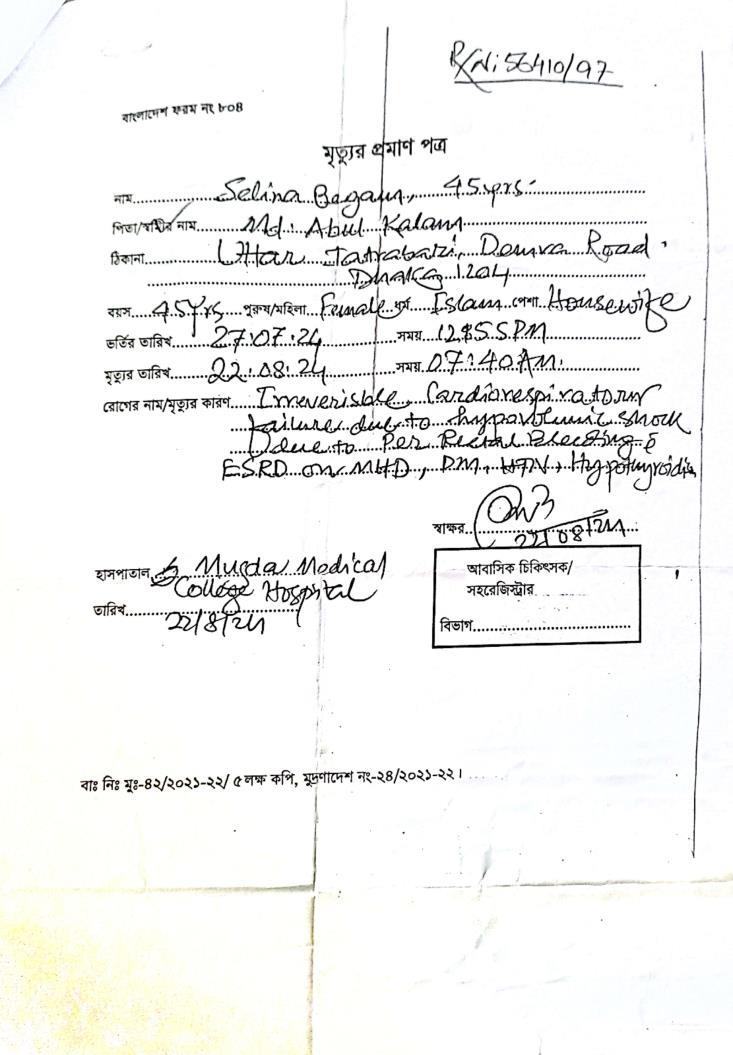 R/N: 56410/97
বাংলাদেশ ফরম নং ৮০৪
মৃত্যুর প্রমাণ পত্র
নাম............Selina Begam, 45 yrs.............
পিতা/স্বামীর নাম............Md. Abul Kalam............
ঠিকানা............Uttar Jatrabari, Demra Road.
Dhaka 1204
বয়স...45 Yrs...পুরুষ/মহিলা Female ধর্ম Islam পেশা Housewife
ভর্তির তারিখ......27.07.24......সময়...PM
মৃত্যুর তারিখ......22.08.24......সময়.07:40 AM.
রোগের নাম/মৃত্যুর কারণ...Irreverisble Cardiorespiratory
failure due to hypovolumic shock
due to Per Rectal Bleeding c̄
ESRD on MHD, DM, HTN, Hypothyroidis
স্বাক্ষর
22/08/24
হাসপাতাল Mugda Medical
College Hospital
তারিখ............
২২/৮/২৪
আবাসিক চিকিৎসক/
সহরেজিস্ট্রার
বিভাগ............
বাঃ নিঃ মুঃ-৪২/২০২১-২২/ ৫ লক্ষ কপি, মুদ্রণাদেশ নং-২৪/২০২১-২২।